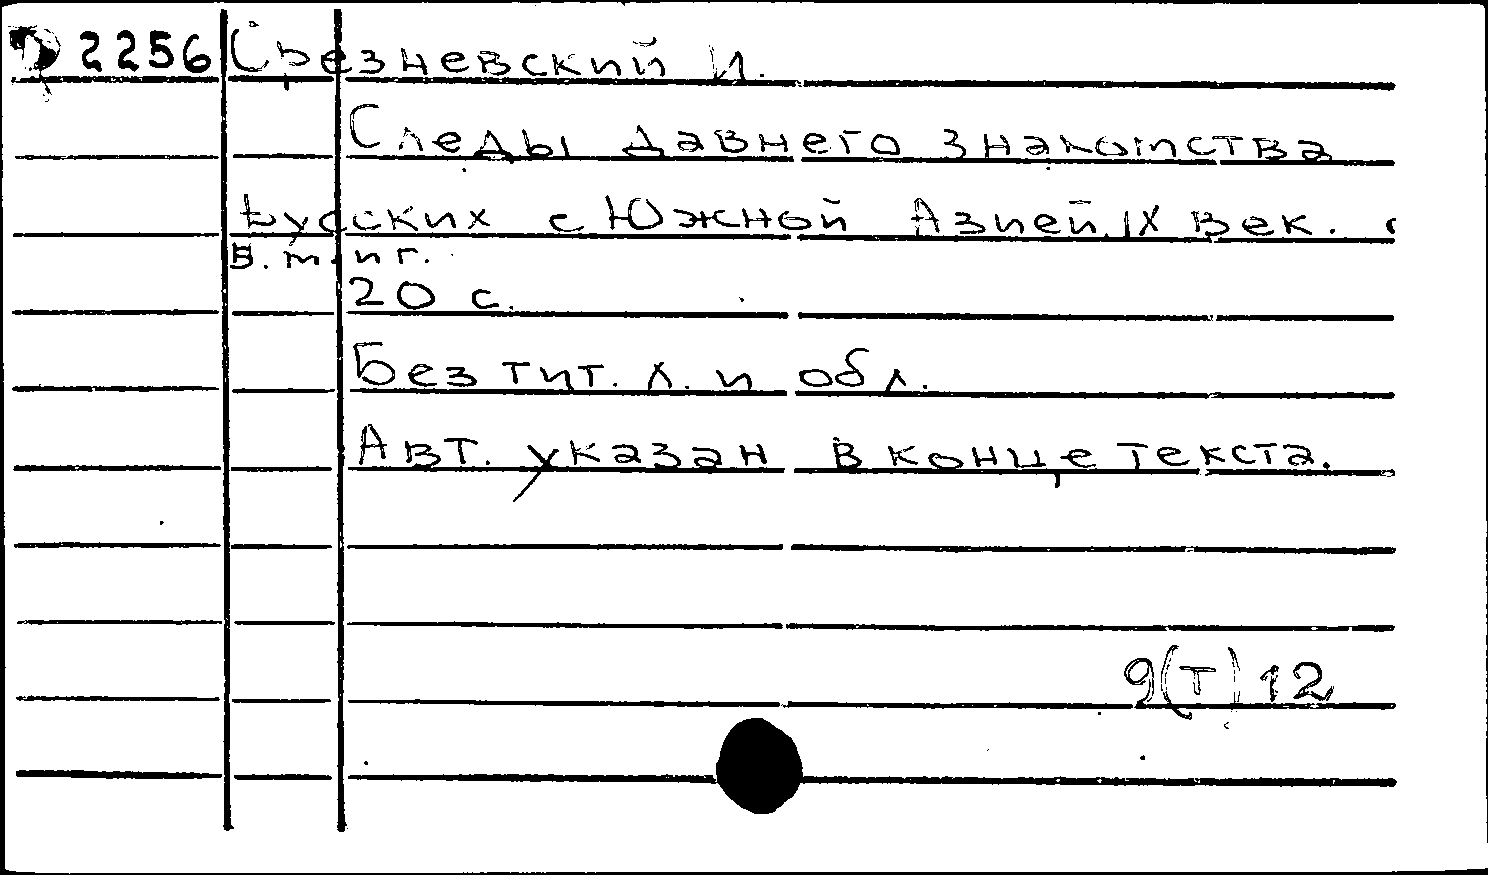 D 2256 Срезневский И.
Следы давнего знакомства
русских с Южной Азией. IX век.
Б. м. и г.
20 с.
Без тит. л. и обл.
Авт. указан в конце текста.
9(Т)12